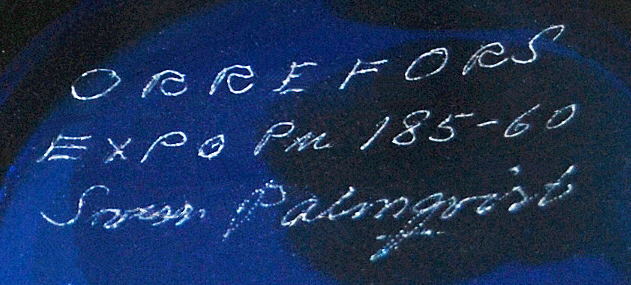 ORREFORS
EXPO PM 185-60
Sven Palmqvist